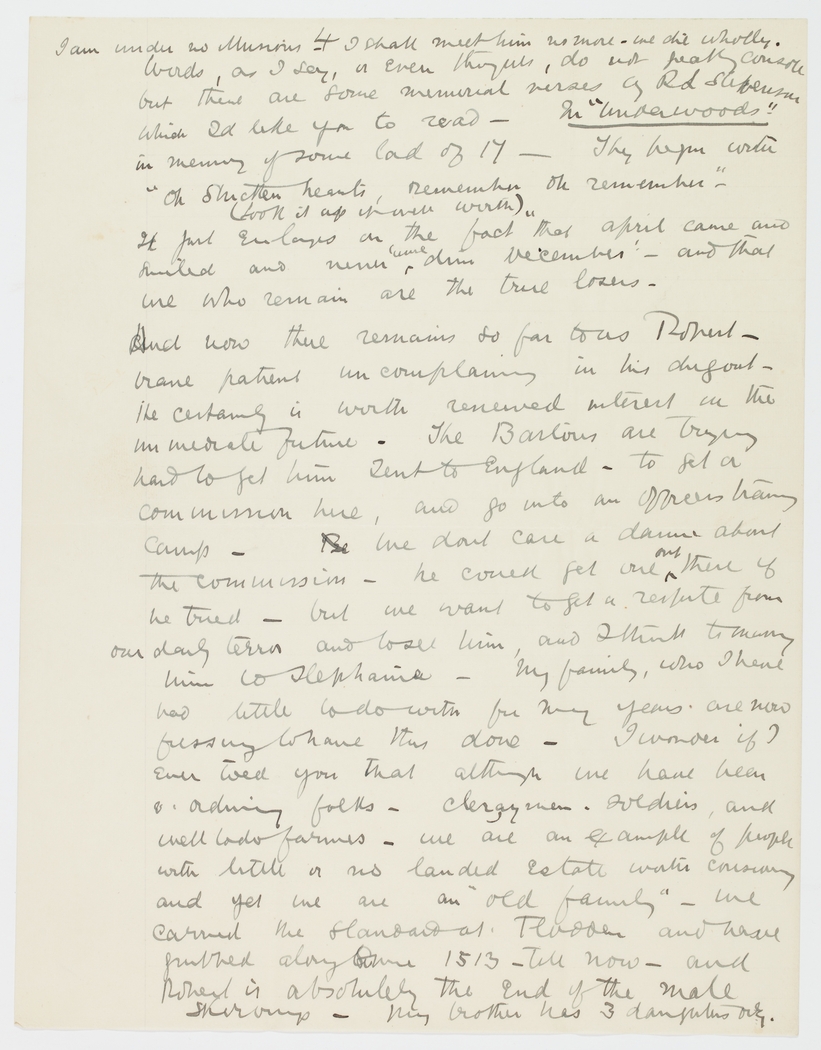 I am under no illusions 4 I shall meet him no more - we die wholly.
Words, as I say, or even thoughts, do not greatly console
but there are some memorial verses by Rd Stevenson
which I'd like you to read - In "Underwoods"
in memory of some lad of 17 — They begin with
"Oh Stricken hearts, remember oh remember" -
(look it up it well worth)
It just enlarges on the fact that "april came and
smiled and never came drear December' - and that
we who remain are the true losers -
And now there remains so far to us Robert -
brave patient uncomplaining in his dugout -
He certainly is worth renewed interest in the
immediate future - The Bartons are trying
hard to get him sent to England - to get a
commission here, and go into an officers training
camp - we dont care a damn about
the commission - he could get one out there if
he tried - but we want to get a respite from
our daily terror and to see him, and I think to marry
him to Stephanie - My family, who I have
had little to do with for many years are now
pressing to have this done - I wonder if I
ever told you that although we have been
v. ordinary folks - clergymen - soldiers, and
well to do farmers - we are an example of people
with little or no landed Estate worth
and yet we are an "old family" - we
carried the standard at Flodden and have
grubbed along since 1513 - till now - and
Robert is absolutely the end of the male
Skirvings - My brother has 3 daughters only.